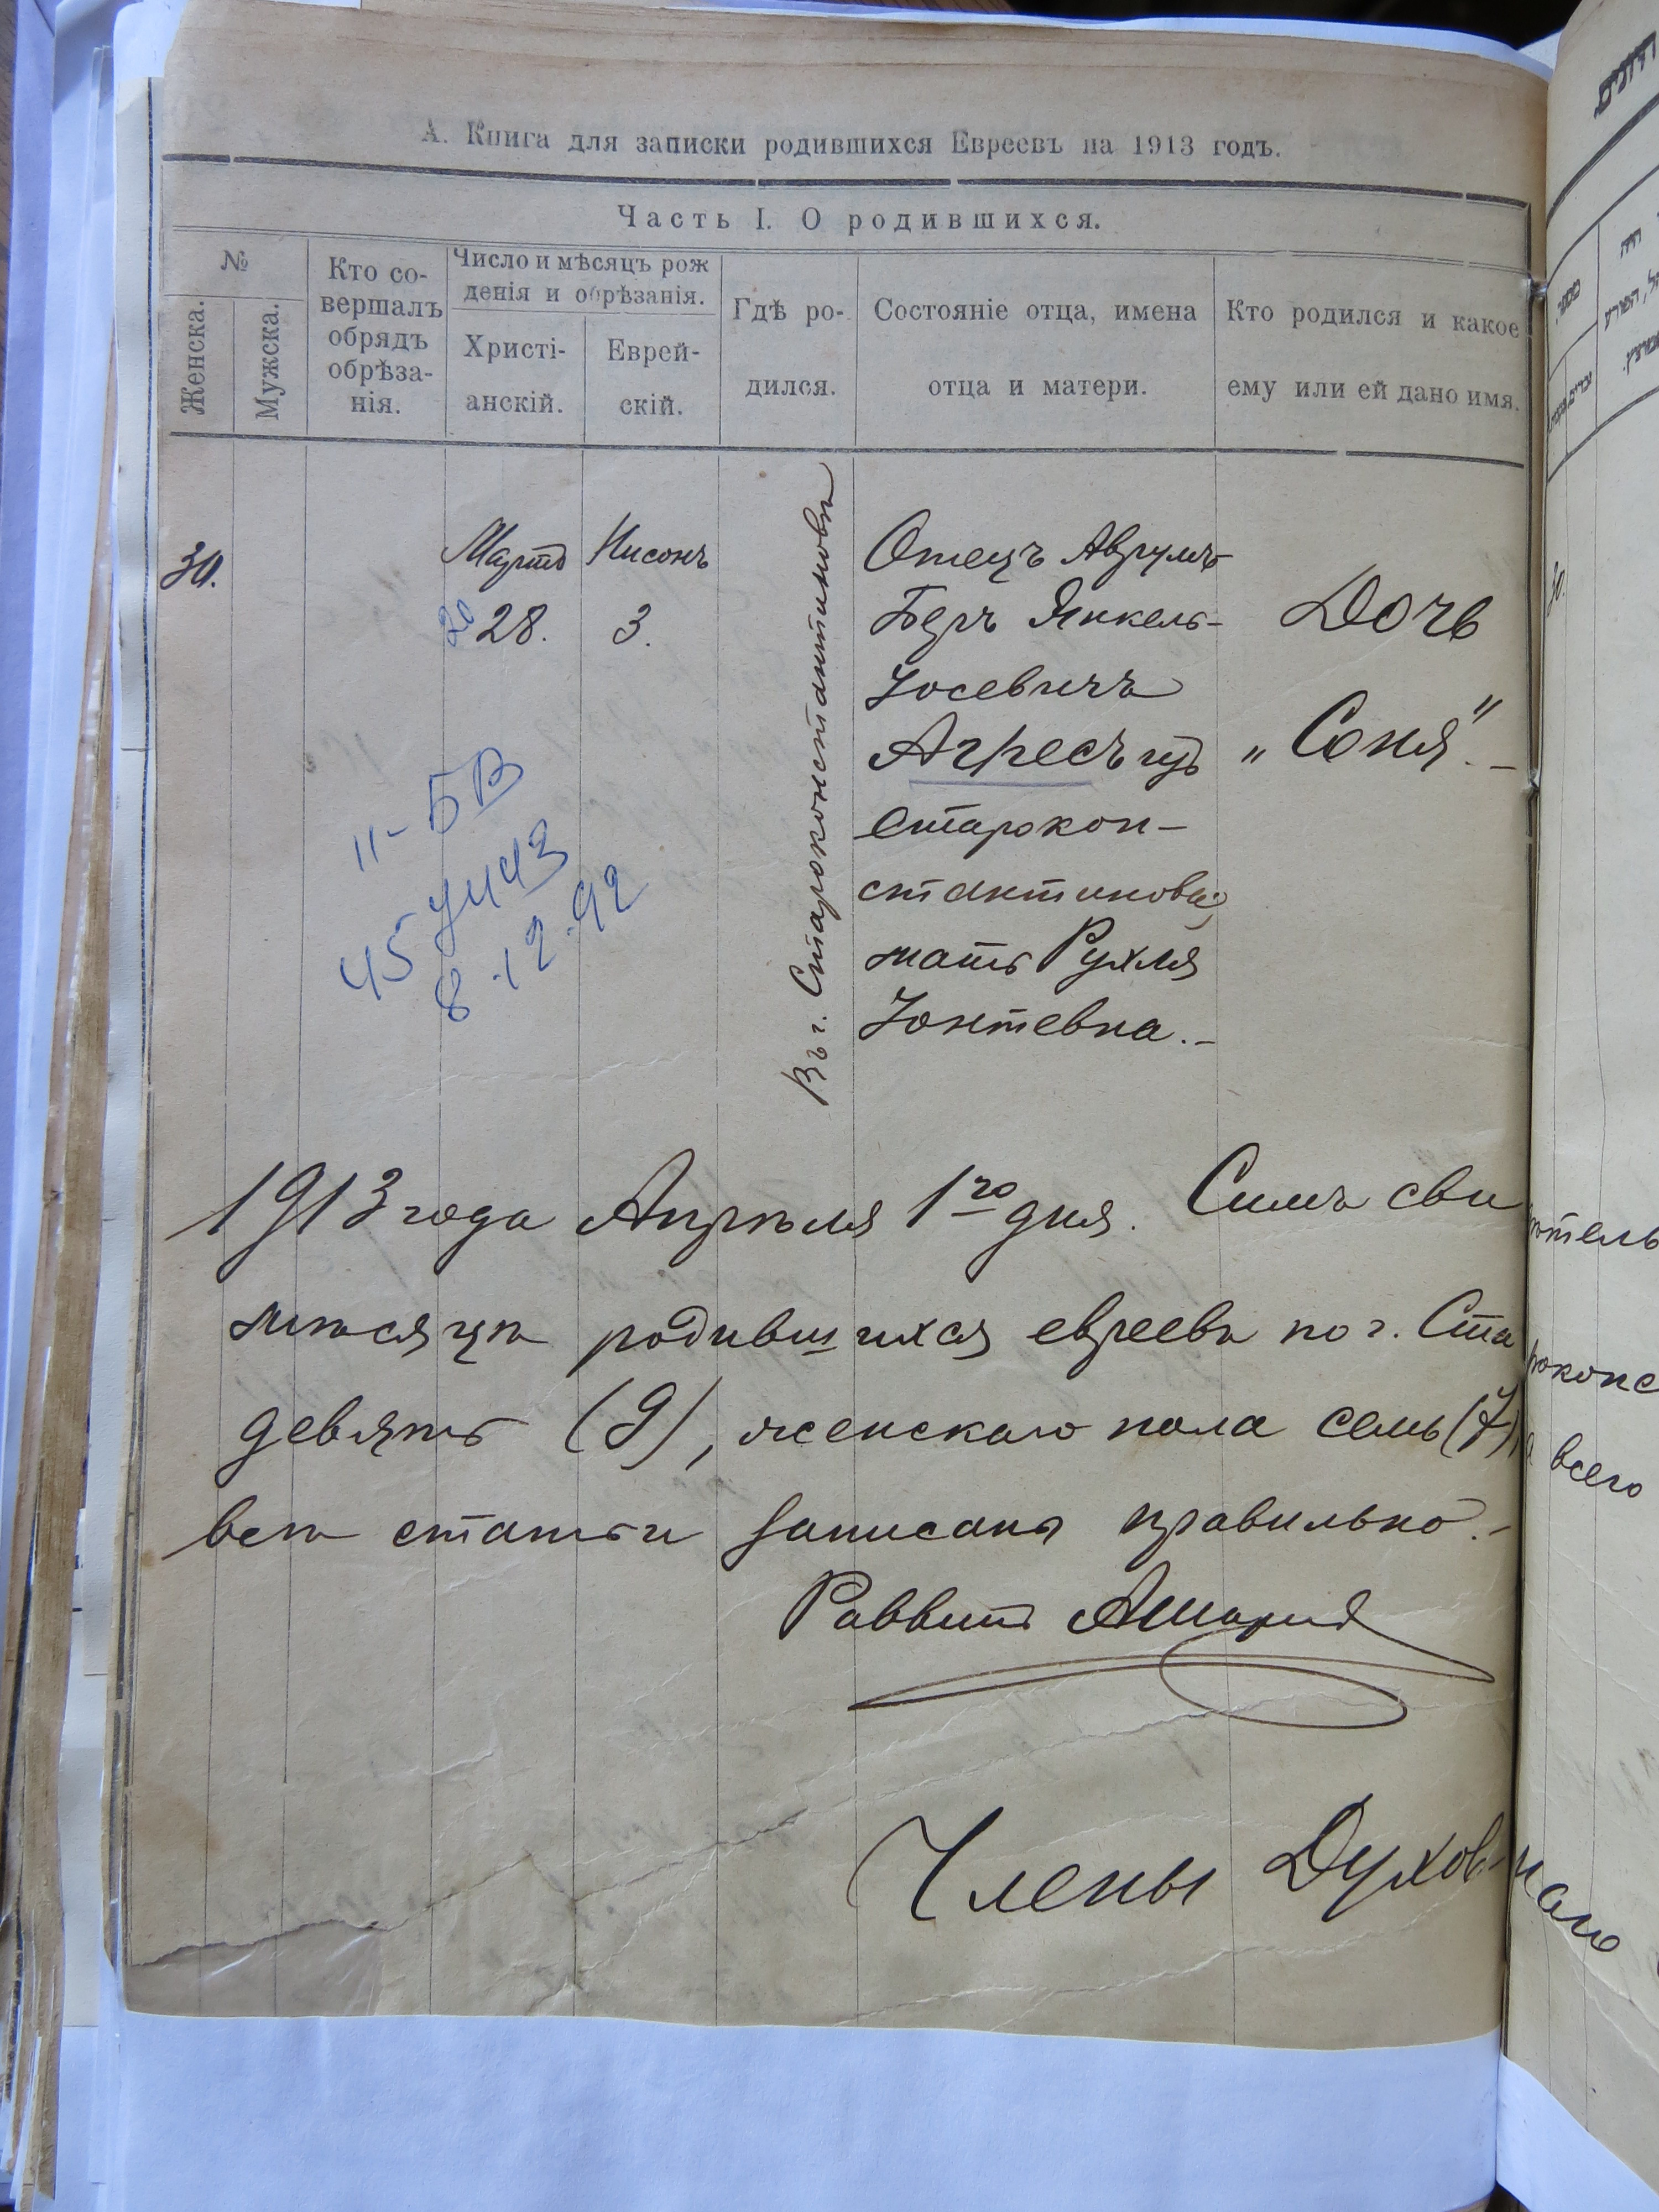 А. Книга для записки родившихся Евреевъ на 1913 годъ.
Часть I. О родившихся.
№
Женска.
Мужска.
Кто со-
вершалъ
обрядъ
обрѣза-
нія.
Число и мѣсяцъ рож
денія и обрѣзанія.
Христі-
анскій.
Еврей-
скій.
Гдѣ ро-
дился.
Состояніе отца, имена
отца и матери.
Кто родился и какое
ему или ей дано имя.
30.
Мартъ
28.
Нисонъ
3.
Въ г. Староконстантиновѣ
Отецъ Аврумъ-
Беръ Янкель-
Іосевичъ
Агресъ изъ
Старокон-
стантинова,
мать Рухля
Іонтевна.-
Дочь
„Соня".-
11-БВ
45
8.12.92
1913 года Апрѣля 1го дня. Симъ сви
мѣсяцѣ родившихся евреевъ по г. Ста
девять (9), женскаго пола семь (7),
всѣ статьи записаны правильно.-
Раввинъ
Члены Духов-
30.
тель
роконс
всего
наго